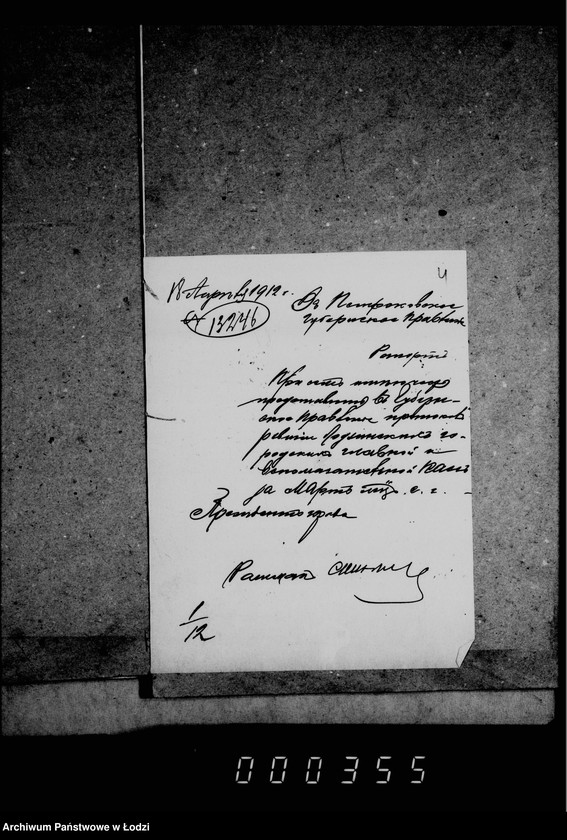 4
18 Апреля 1912 г.
13246
Въ Петроковское
Губернское Правление
Рапортъ
При семъ имею честь
представить въ Губерн-
ское Правление протоколъ
ревизии Лодзинскихъ го-
родскихъ главной и
вспомогательной кассъ
за Мартъ мц. с. г.
Президентъ города
1/12
000355
Archiwum Państwowe w Łodzi